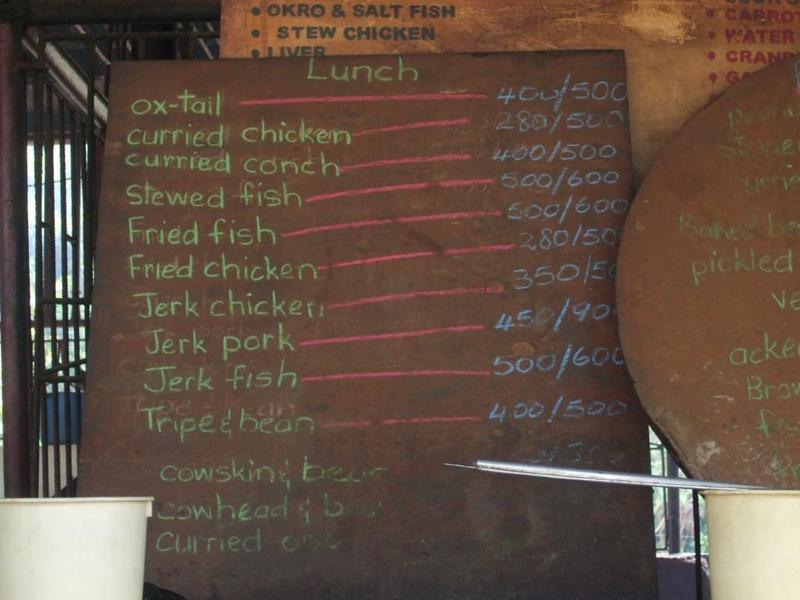 • OKRO & SALT FISH
• STEW CHICKEN
• LIVER
CARROT
WATER
Lunch
ox-tail 400/500
curried chicken 280/500
curried conch 400/500
Stewed fish 500/600
Fried fish 500/600
Fried chicken 280/50
Jerk chicken 350/50
Jerk pork 450/90
Jerk fish 500/600
Tripe & bean 400/500
cowskin & bean
cowhead & b
Curried
Baked be
pickled
ve
acke
Brow